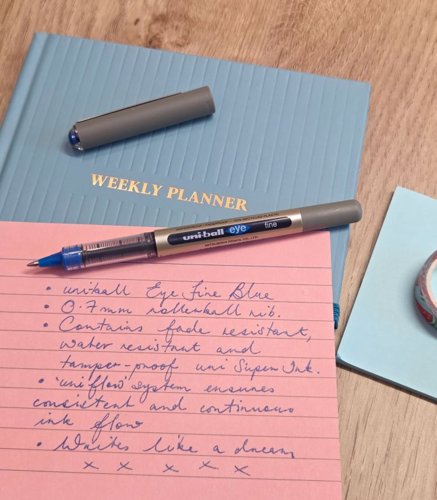 WEEKLY PLANNER
uni-ball eye fine
MITSUBISHI PENCIL CO., LTD.
• uniball Eye Fine Blue
• 0.7mm rollerball nib.
• Contains fade resistant,
water resistant and
tamper-proof uni Super Ink.
• 'uni flow' system ensures
consistent and continuous
ink flow
• Writes like a dream
x x x x x